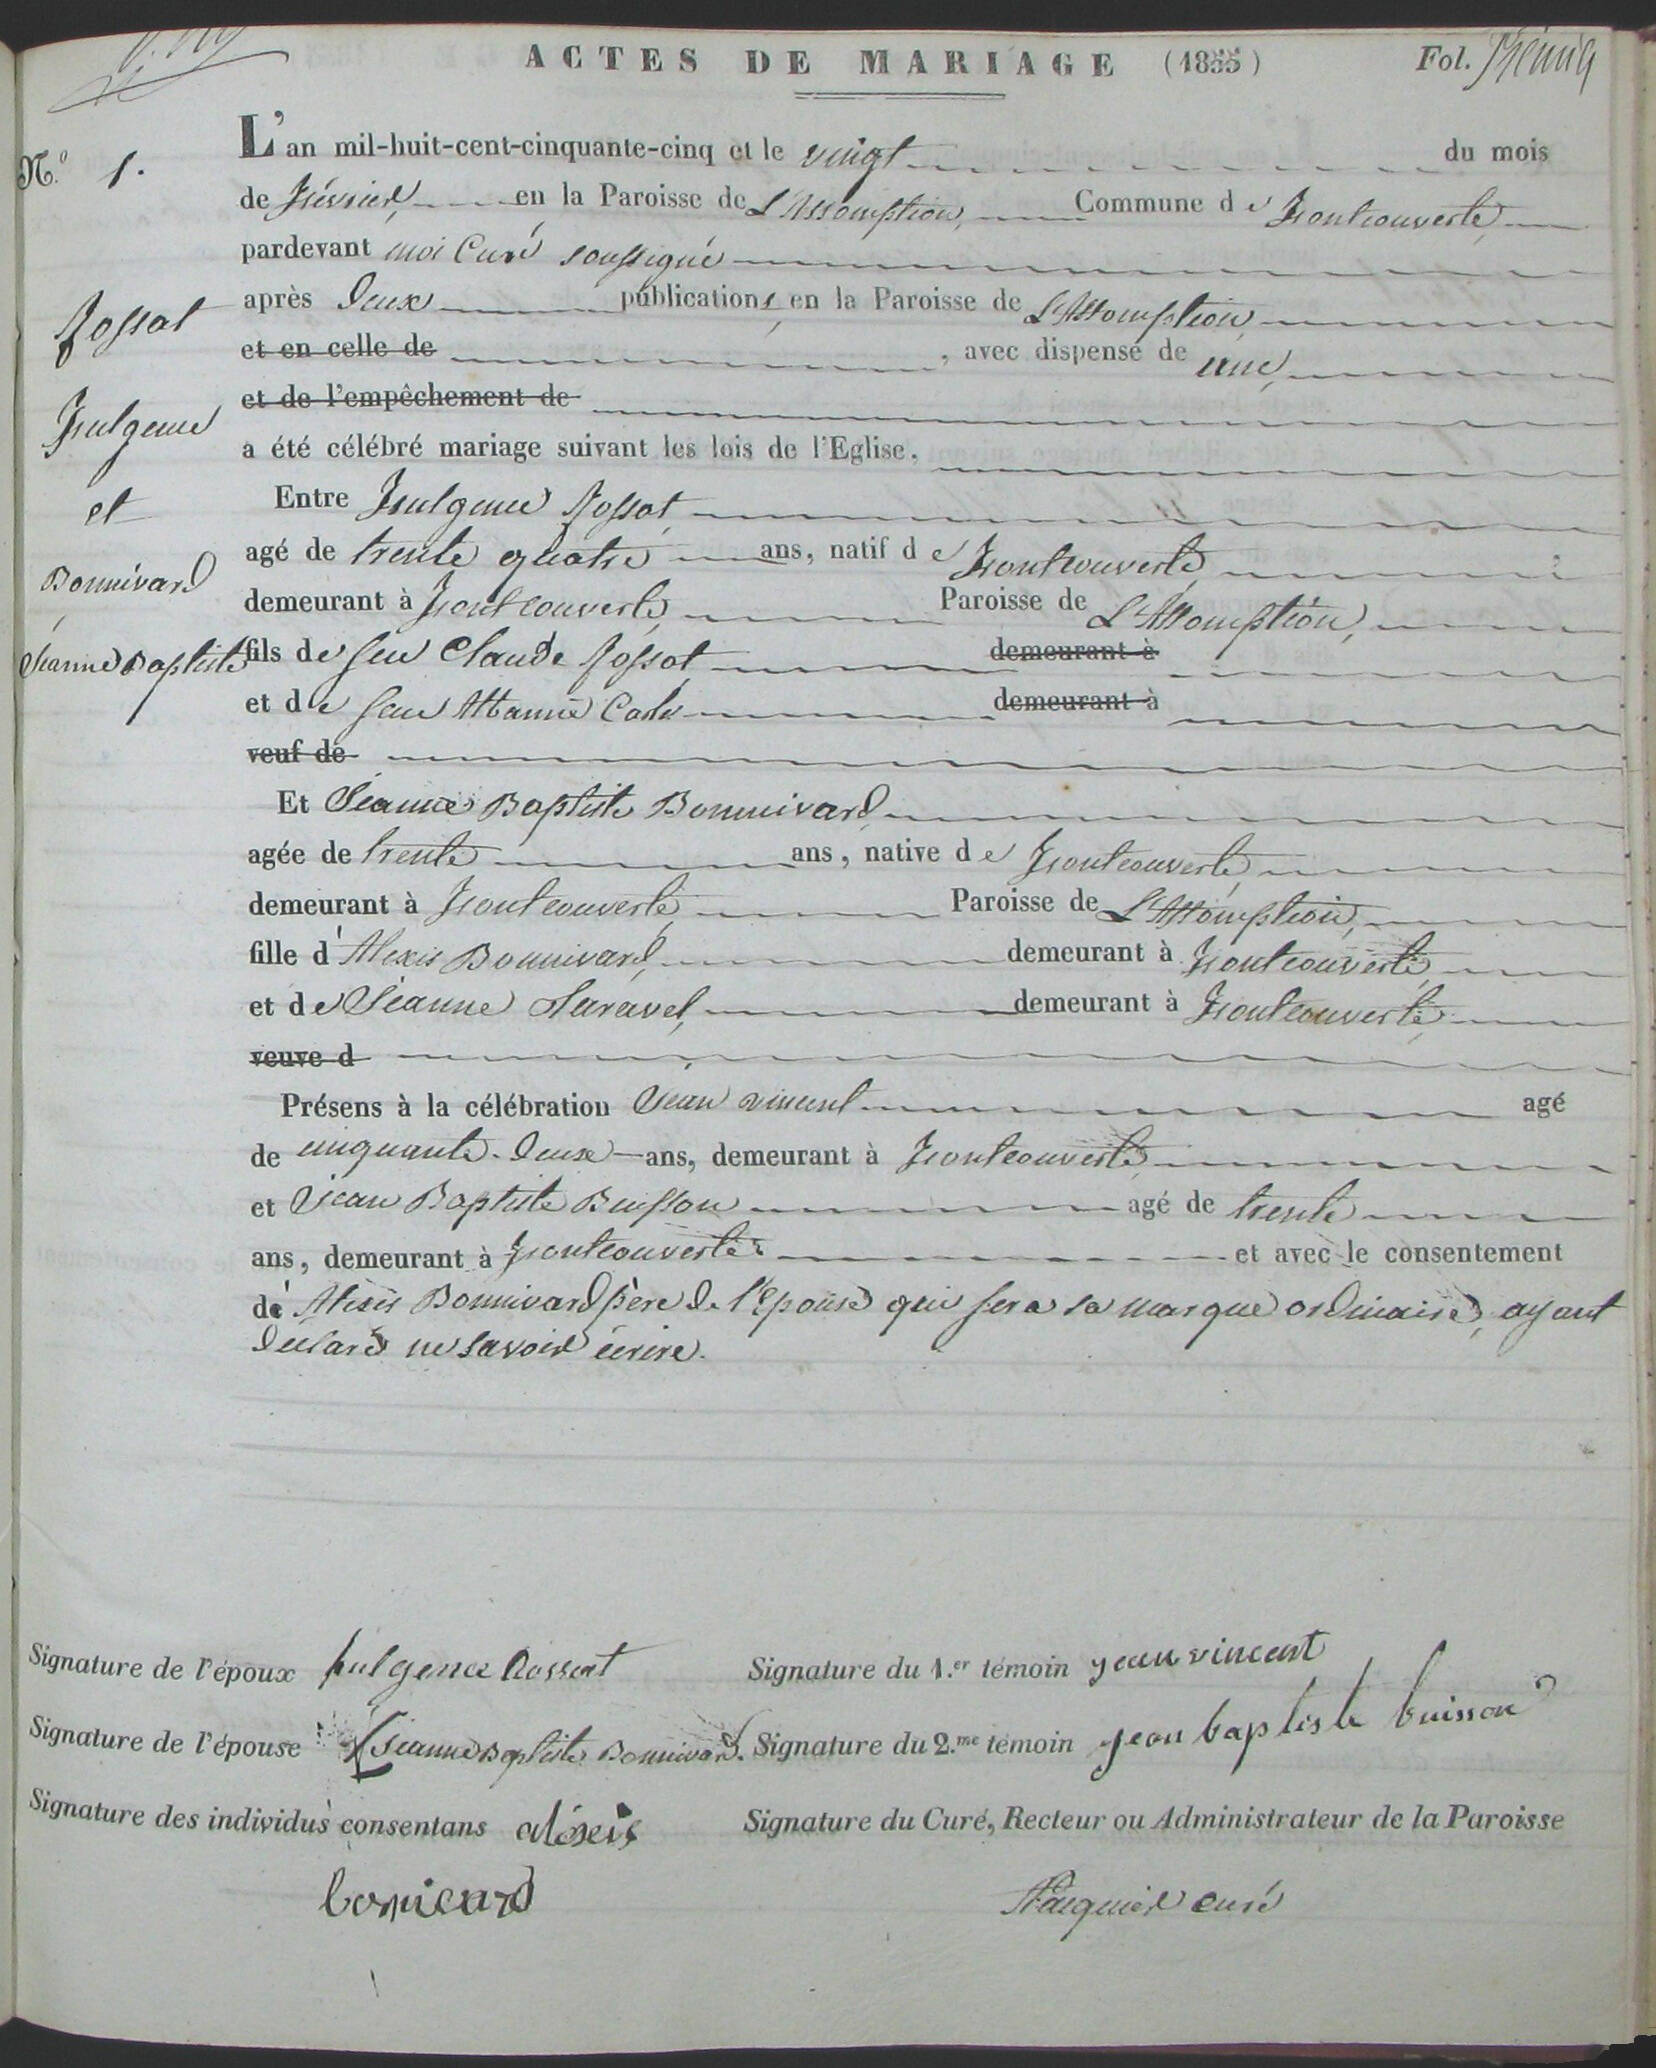 ACTES DE MARIAGE (1855) Fol. Premier
N.º 1.
L'an mil-huit-cent-cinquante-cinq et le vingt du mois
de Février, en la Paroisse de L'Assomption, Commune de Fontcouverte,
pardevant moi Curé soussigné
après deux publications, en la Paroisse de L'Assomption
et en celle de , avec dispense de une,
et de l'empêchement de
a été célébré mariage suivant les lois de l'Eglise,
Rossat
Fulgence
et
Bonnivard
Jeanne Baptiste
Entre Fulgence Rossat
agé de trente quatre ans, natif de Fontcouverte
demeurant à Fontcouverte Paroisse de L'Assomption,
fils de feu Claude Rossat demeurant à
et de feue demeurant à
veuf de
Et Jeanne Baptiste Bonnivard
agée de trente ans, native de Fontcouverte
demeurant à Fontcouverte Paroisse de L'Assomption,
fille d'Alexis Bonnivard, demeurant à Fontcouverte
et de Jeanne Claravel, demeurant à Fontcouverte
veuve d
Présens à la célébration Jean vincent agé
de cinquante-deux ans, demeurant à Fontcouverte
et Jean Baptiste Buisson agé de trente
ans, demeurant à Fontcouverte et avec le consentement
de Alexis Bonnivard père de l'Epouse qui fera sa marque ordinaire, ayant
declaré ne savoir écrire.
Signature de l'époux fulgence Rossat Signature du 1.er témoin jean vincent
Signature de l'épouse Jeanne Baptiste Bonnivard. Signature du 2.me témoin jean baptiste buisson
Signature des individus consentans aléxis Signature du Curé, Recteur ou Administrateur de la Paroisse
bonivard curé